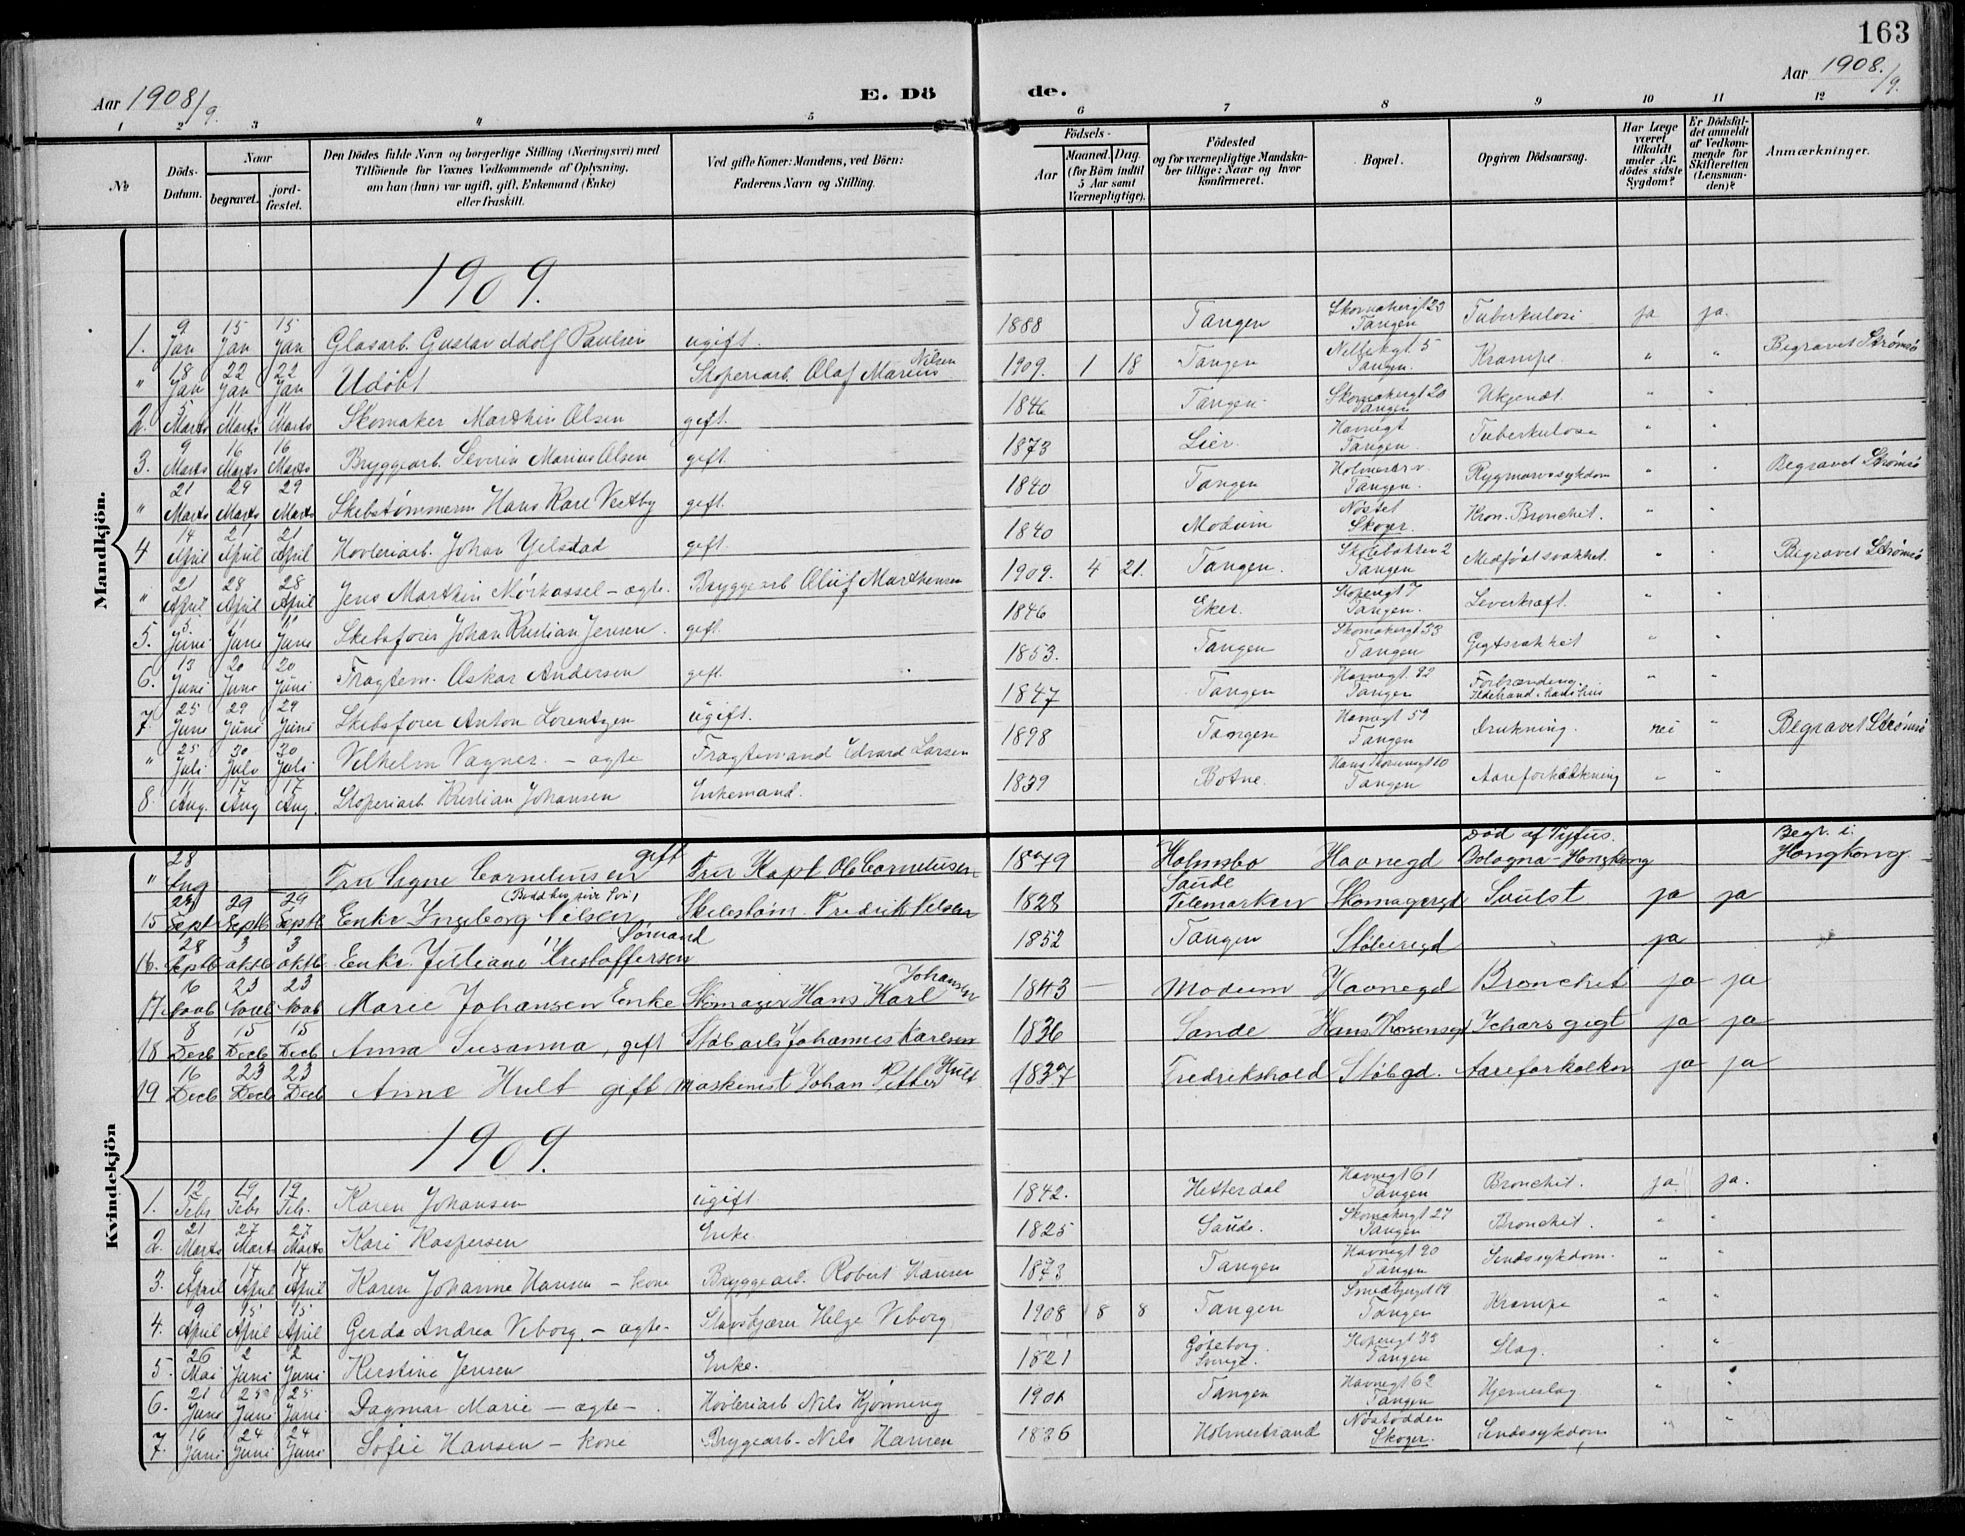 163
Aar 1908/9.
E. Dö de.
Aar 1908./9.
1 2 3 4 5 6 7 8 9 10 11 12
No
Döds-Datum.
Naar
begravet.
jord-fæstet.
Den Dödes fulde Navn og borgerlige Stilling (Næringsvei) med
Tilföiende for Voxnes Vedkommende af Oplysning,
om han (hun) var ugift, gift, Enkemand (Enke)
eller fraskilt.
Ved gifte Koner: Mandens, ved Börn:
Faderens Navn og Stilling.
Födsels-
Aar
Maaned. Dag.
(for Börn indtil
5 Aar samt
Værnepligtige).
Födested
og for værnepligtige Mandska-
ber tillige: Naar og hvor
konfirmeret.
Bopæl.
Opgiven Dödsaarsag.
Har Læge
været
tilkaldt
under Af-
dödes sidste
Sygdom?
Er Dödsfal-
det anmeldt
af Vedkom-
mende for
Skifteretten
(Lensman-
den)?
Anmærkninger.
Mandkjön.
1909.
1. 9 Jan 15 Jan 15 Jan Glasarb. Gustav Adolf Paulsen ugift. 1888 Tangen Skomakergt 23 Tangen Tuberkulose ja ja.
" 18 Jan 22 Jan 22 Jan Udöbt Stoperiarb. Olaf Marius Nilsen 1909. 1 18 Tangen 5 Tangen. Krampe " " Begravet Strømsö
2. 5 Marts 11 Marts 11 Marts Skomaker Marthin Olsen gift. 1846 Tangen Skomakergt 20 Tangen Ukjendt " "
3. 9 Marts 16 Marts 16 Marts Bryggearb. Severin Marius Olsen gift. 1873 Lier. Havnegt Tangen. Tuberkulose " "
" 21 Marts 29 Marts 29 Marts Skibstømmerm Hans Karl Vestby gift. 1840 Tangen Tangen. Rygmarvssykdom " " Begravet Strømsö
4 14 April 21 April 21 April Hovleriarb. Johan gift. 1840 Modum Nøstet Skoger. Kron. Bronchit. " "
" 21 April 28 April 28 April Jens Marthin - ægte. Bryggearb Oluf Marthinsen 1909. 4 21. Tangen. 2 Tangen Medfødt svakhet. " " Begravet Strømsö
5. 5 Juni 11 June 11 June Skibsfører Johan Kristian Jensen. gift. 1846 Eker. Stoperigt 7 Tangen. Leverkræft. " "
6. 13 Juni 20 Juni 20 Juni Fragtem. Oskar Andersen gift. 1853. Tangen Skomakergt 33 Tangen Gigtsvakhet " "
7. 25 June 29 Juni 29 Juni Skibsfører Anton Lorentzen ugift. 1847 Tangen Havnegt. 92 Tangen Forbrænding. " "
" 25 Juli 30 Juli 30 Juli Vilhelm Vagner. - ægte Fragtemand Edvard Larsen 1898 Tangen Havnegt 59 Tangen drukning. nei " Begravet Strømsö
8. Aug. 17 Aug 17 Aug. Stoperiarb. Kristian Johansen Enkemand. 1839 Botne. Hans Thorsensgt 10 Tangen Aareforkalkning " "
Kvindekjön
" 28 Aug Fru Signe Corneliussen gift Fru Kapt Ole Cornelussen 1879 Holmsbo Havnegd Död af Tyfus. Bologna - Hongkong Begr. i. Hongkong.
15 Septbr 29 Septb 29 Septb Enke Ingeborg Nilsen Skibstøm. Fredrik Nelsen 1828 Saude Telemarken Skomagergd Svulst ja ja
16. 28 Septb 3 oktb 3 oktb. Enke. Juliane Kristoffersen Sömand 1852 Tangen Støberigd " ja
17 16 Novb 23 Novb 23 Novb Marie Johansen Enke Skomager Hans Karl Johansen 1843 — Modum Havnegd Bronchit ja ja
18 8 Decb 15 Decb 15 Decb Anna Susanna, gift Støb arb Johannes Karlsen 1836 Sande Hans Thorsensgd gigt ja ja
19 16 Decb 23 Decb 23 Decb Anne Hult gift Maskinist Johan Petter Hult 1837 Fredrikshald Støbgd. Aareforkalken ja ja
1909.
1. 12 Febr 19 Febr 19 Feb. Karen Johansen ugift. 1842. Hetterdal Havnegt 61 Tangen Bronchit. ja ja.
2. 21 Marts 27 Marts 27 Marts Kari Kaspersen Enke. 1825 Saude. Skomakergt 27 Tangen Bronchit. " "
3. 6 April 14 April 14 April Karen Johanne Hansen - kone Bryggearb. Robert Hansen 1873 Tangen Havnegt 20 Tangen Sindssykdom. " "
4. 9 April 15 April 15 April Gerda Andrea Viborg. - ægte- Helge Viborg 1908 8 8 Tangen Smedbjerget 19 Tangen Krampe " "
5. 26 Mai 2 Juni 2 Juni Kirstine Jensen Enke. 1821 Göteborg. Sverige. Stoperigt 33 Tangen Slag. " "
6. 21 June 25 Juni 25 Juni Dagmar Marie - ægte- Hovleriarb Nils Kjønning 1901 Tangen Havnegt 62 Tangen Hjerneslag " "
7. 16 Juni 24 Juni 24 Juni Sofie Hansen - kone Bryggearb- Nils Hansen 1836 Holmestrand Nøstodden Skoger. Sindssykdom " "